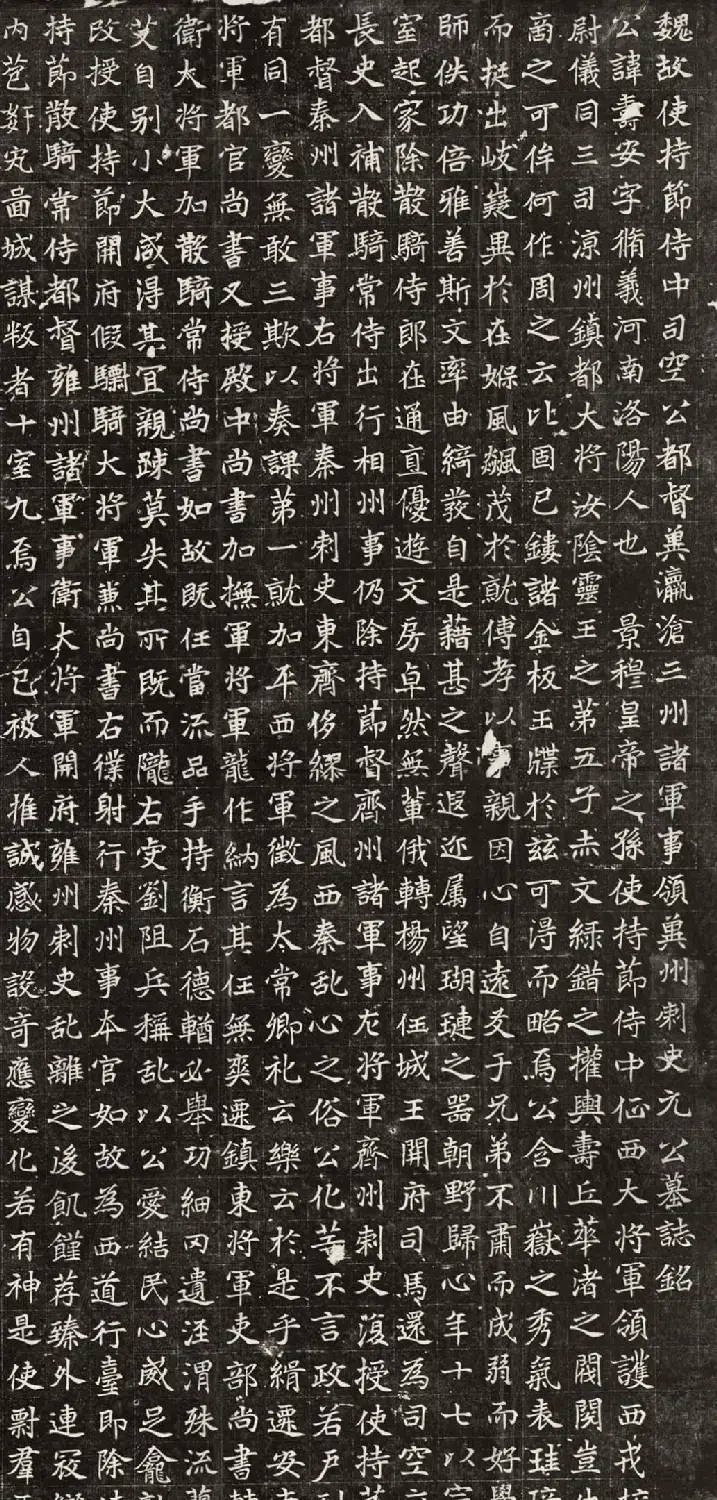 魏故使持節侍中司空公都督兾瀛滄三州諸軍事領兾州刺史元公墓誌銘
公諱壽安字脩義河南洛陽人也 景穆皇帝之孫使持節侍中征西大將軍領護西戎
尉儀同三司涼州鎮都大將汝陰靈王之第五子赤文綠錯之權輿壽丘華渚之閥閱豈
啇之可侔何作周之云比固已鏤諸金板王牒於茲可得而略焉公含川嶽之秀氣表珪璋
而挺出岐嶷異於在娽風飆茂於就傅孝以事親因心自遠友于兄弟不肅而成弱而好學
師佚功倍雅善斯文率由綺發自是藉甚之聲遐迩属望瑚璉之器朝野歸心年十七以
室起家除散騎侍郎在通直優遊文房卓然無輩俄轉楊州任城王開府司馬還為司空
長史入補散騎常侍出行相州事仍除持節督齊州諸軍事左將軍齊州刺史復授使持
都督秦州諸軍事右將軍秦州刺史東齊侈繆之風西秦乱心之俗公化等不言政若戶
有同一變無敢三欺以奏課第一就加平西將軍徵為太常卿礼云樂云於是乎緝遷安
將軍都官尚書又授殿中尚書加撫軍將軍龍作納言其任無爽遷鎮東將軍吏部尚書
衛大將軍加散騎常侍尚書如故既任當流品手持衡石德輶必舉功細罔遺涇渭殊流
艾自别小大咸得其宜親踈莫失其所既而隴右妛劉阻兵稱乱以公愛結民心威足龕
改授使持節開府假驃騎大將軍兼尚書右僕射行秦州事本官如故為西道行臺即除
持節散騎常侍都督雍州諸軍事衛大將軍開府雍州刺史乱離之後飢饉荐臻外連寇
内苞姧宄啚城謀叛者十室九焉公自己被人推誠感物設奇應變化若有神是使罻羣